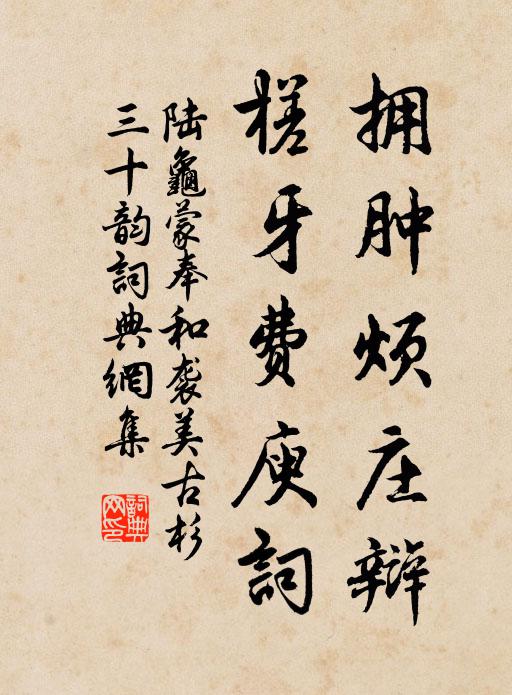 拥肿烦庄辩
槎牙费庾词
陆龟蒙奉和袭美古杉
三十韵词典网集
词典网印